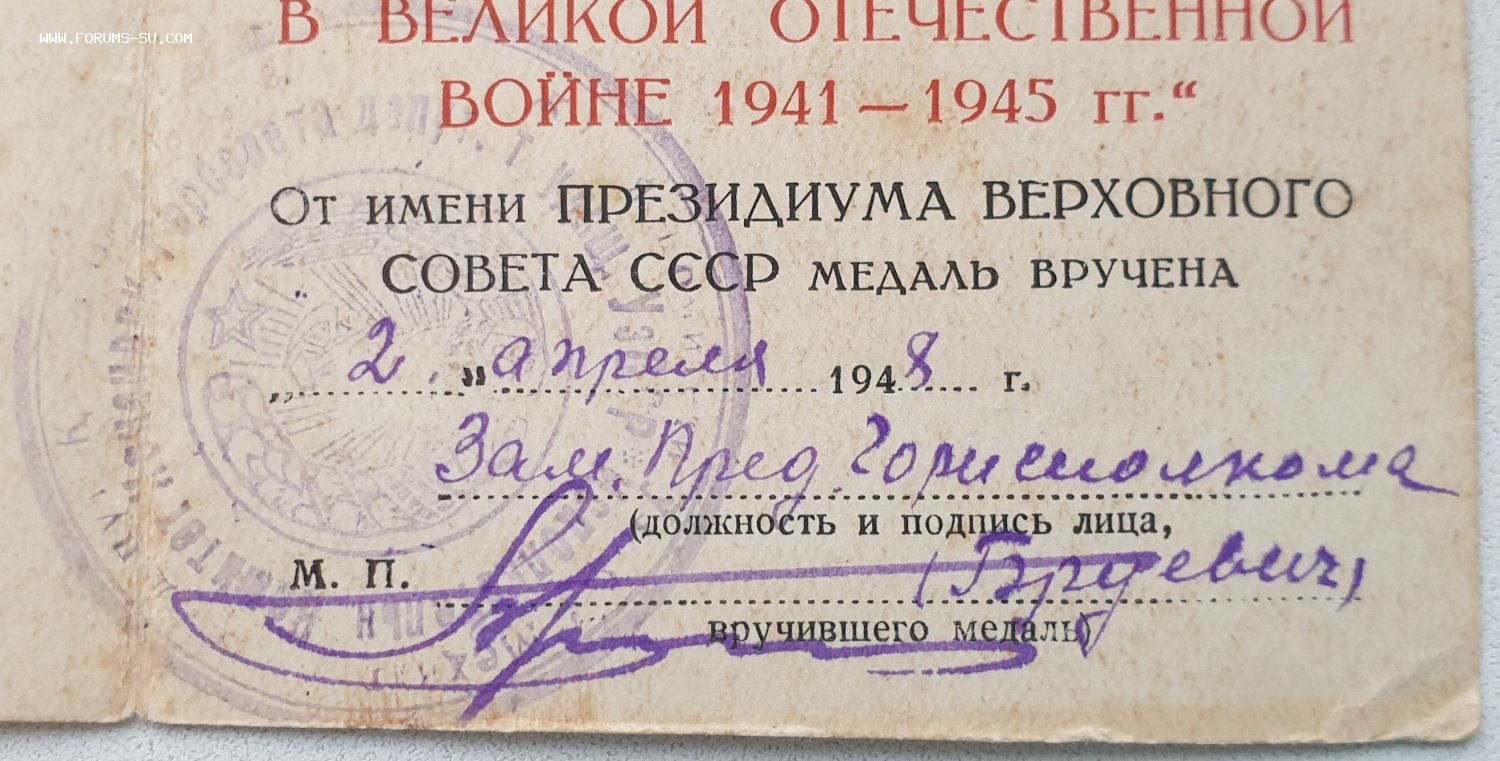 WWW.FORUMS-SU.COM
В ВЕЛИКОЙ ОТЕЧЕСТВЕННОЙ
ВОЙНЕ 1941 — 1945 гг.“
От имени ПРЕЗИДИУМА ВЕРХОВНОГО
СОВЕТА СССР МЕДАЛЬ ВРУЧЕНА
„ 2. " апреля 1948 г.
Зам. Пред. Горисполкома
(должность и подпись лица,
М. П.
вручившего медаль)